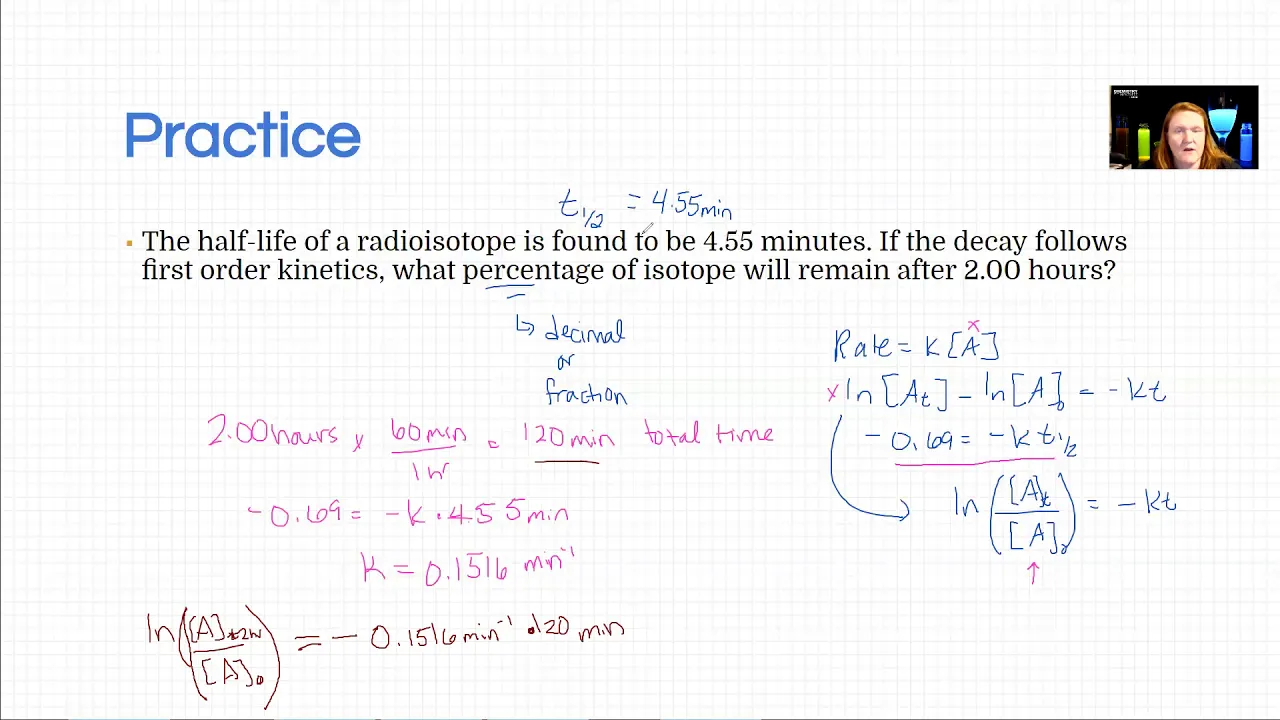 Practice
t1/2 = 4.55min
▪ The half-life of a radioisotope is found to be 4.55 minutes. If the decay follows
first order kinetics, what percentage of isotope will remain after 2.00 hours?
↳ decimal
or
fraction
Rate = k[A]
x
x ln[At] - ln[A]0 = -kt
-0.69 = -k t1/2
ln([A]t/[A]0) = -kt
↑
2.00hours x 60min/1hr = 120min total time
-0.69 = -k·4.55min
k = 0.1516 min⁻¹
ln([A]t2hr/[A]0) = -0.1516min⁻¹ · 120 min